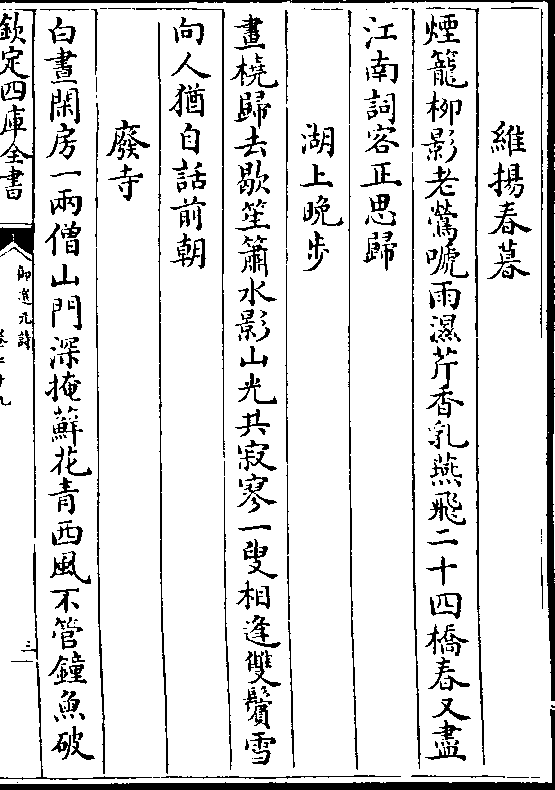 維揚春暮
煙籠柳影老鶯嗁雨濕芹香乳燕飛二十四橋春又盡
江南詞客正思歸
湖上晚步
畫橈歸去歇笙簫水影山光共寂寥一叟相逢雙鬢雪
向人猶自話前朝
廢寺
白晝閑房一兩僧山門深掩蘚花青西風不管鐘魚破
欽定四庫全書
御選元詩
三